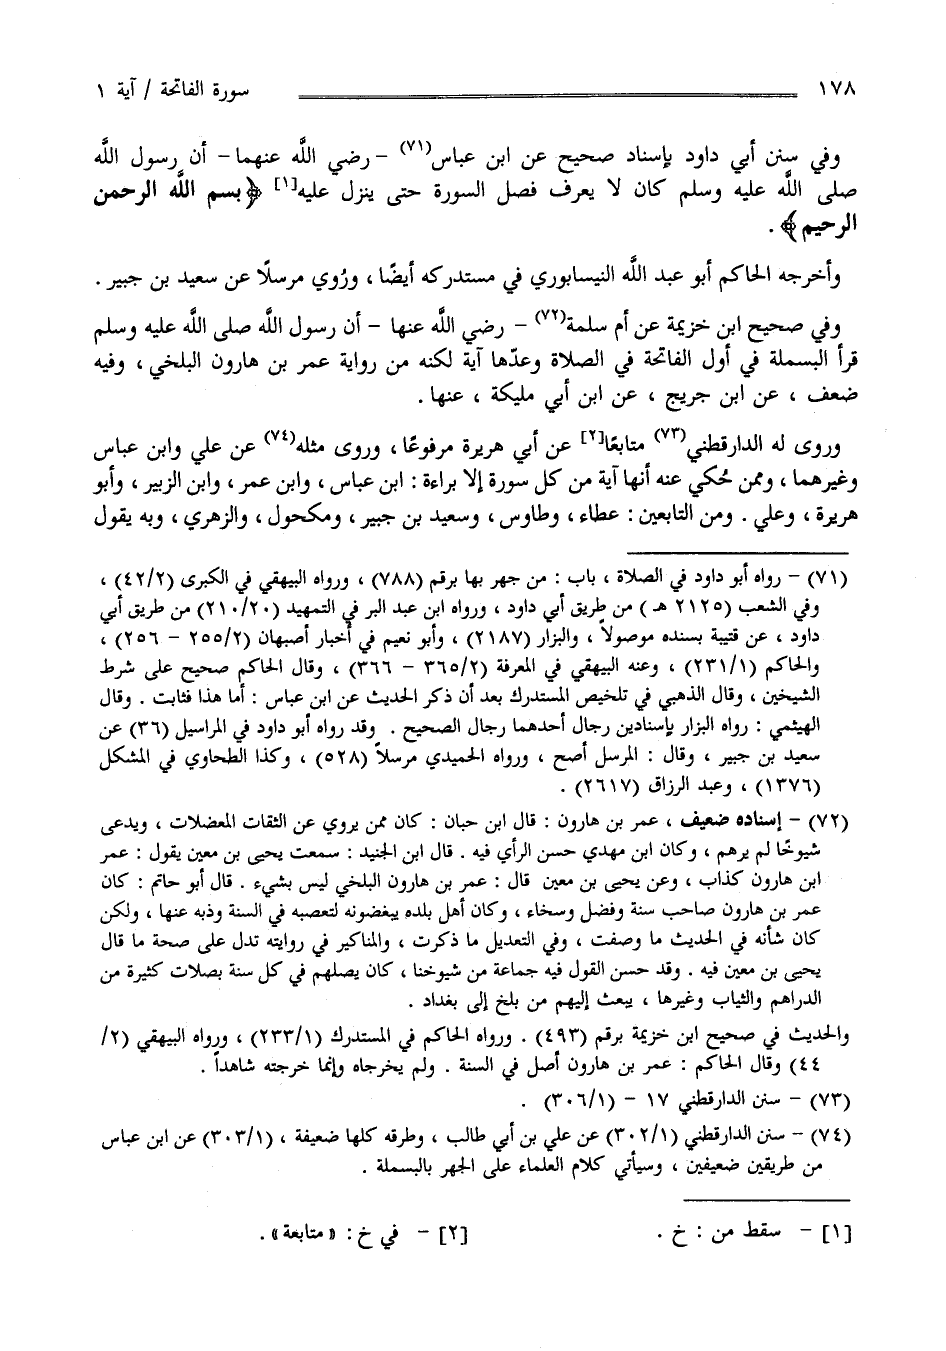 ١٧٨ سورة الفاتحة / آية ١
وفي سنن أبي داود بإسناد صحيح عن ابن عباس(٧١) - رضي الله عنهما - أن رسول الله
صلى الله عليه وسلم كان لا يعرف فصل السورة حتى ينزل عليه[١] ﴿بسم الله الرحمن
الرحيم﴾ .
وأخرجه الحاكم أبو عبد الله النيسابوري في مستدركه أيضًا ، ورُوي مرسلًا عن سعيد بن جبير .
وفي صحيح ابن خزيمة عن أم سلمة(٧٢) - رضي الله عنها - أن رسول الله صلى الله عليه وسلم
قرأ البسملة في أول الفاتحة في الصلاة وعدّها آية لكنه من رواية عمر بن هارون البلخي ، وفيه
ضعف ، عن ابن جريج ، عن ابن أبي مليكة ، عنها .
وروى له الدارقطني(٧٣) متابعًا[٢] عن أبي هريرة مرفوعًا ، وروى مثله(٧٤) عن علي وابن عباس
وغيرهما ، وممن حُكي عنه أنها آية من كل سورة إلا براءة : ابن عباس ، وابن عمر ، وابن الزبير ، وأبو
هريرة ، وعلي . ومن التابعين : عطاء ، وطاوس ، وسعيد بن جبير ، ومكحول ، والزهري ، وبه يقول
(٧١) - رواه أبو داود في الصلاة ، باب : من جهر بها برقم (٧٨٨) ، ورواه البيهقي في الكبرى (٤٢/٢) ،
وفي الشعب (٢١٢٥ هـ) من طريق أبي داود ، ورواه ابن عبد البر في التمهيد (٢١٠/٢٠) من طريق أبي
داود ، عن قتيبة بسنده موصولاً ، والبزار (٢١٨٧) ، وأبو نعيم في أخبار أصبهان (٢٥٥/٢ - ٢٥٦) ،
والحاكم (٢٣١/١) ، وعنه البيهقي في المعرفة (٣٦٥/٢ - ٣٦٦) ، وقال الحاكم صحيح على شرط
الشيخين ، وقال الذهبي في تلخيص المستدرك بعد أن ذكر الحديث عن ابن عباس : أما هذا فثابت . وقال
الهيثمي : رواه البزار بإسنادين رجال أحدهما رجال الصحيح . وقد رواه أبو داود في المراسيل (٣٦) عن
سعيد بن جبير ، وقال : المرسل أصح ، ورواه الحميدي مرسلاً (٥٢٨) ، وكذا الطحاوي في المشكل
(١٣٧٦) ، وعبد الرزاق (٢٦١٧) .
(٧٢) - إسناده ضعيف ، عمر بن هارون : قال ابن حبان : كان ممن يروي عن الثقات المعضلات ، ويدعى
شيوخًا لم يرهم ، وكان ابن مهدي حسن الرأي فيه . قال ابن الجنيد : سمعت يحيى بن معين يقول : عمر
ابن هارون كذاب ، وعن يحيى بن معين قال : عمر بن هارون البلخي ليس بشيء . قال أبو حاتم : كان
عمر بن هارون صاحب سنة وفضل وسخاء ، وكان أهل بلده يبغضونه لتعصبه في السنة وذبه عنها ، ولكن
كان شأنه في الحديث ما وصفت ، وفي التعديل ما ذكرت ، والمناكير في روايته تدل على صحة ما قال
يحيى بن معين فيه . وقد حسن القول فيه جماعة من شيوخنا ، كان يصلهم في كل سنة بصلات كثيرة من
الدراهم والثياب وغيرها ، يبعث إليهم من بلخ إلى بغداد .
والحديث في صحيح ابن خزيمة برقم (٤٩٣) . ورواه الحاكم في المستدرك (٢٣٣/١) ، ورواه البيهقي (٢/
٤٤) وقال الحاكم : عمر بن هارون أصل في السنة . ولم يخرجاه وإنما خرجته شاهداً .
(٧٣) - سنن الدارقطني ١٧ - (٣٠٦/١) .
(٧٤) - سنن الدارقطني (٣٠٢/١) عن علي بن أبي طالب ، وطرقه كلها ضعيفة ، (٣٠٣/١) عن ابن عباس
من طريقين ضعيفين ، وسيأتي كلام العلماء على الجهر بالبسملة .
[١] - سقط من : خ . [٢] - في خ : « متابعة » .